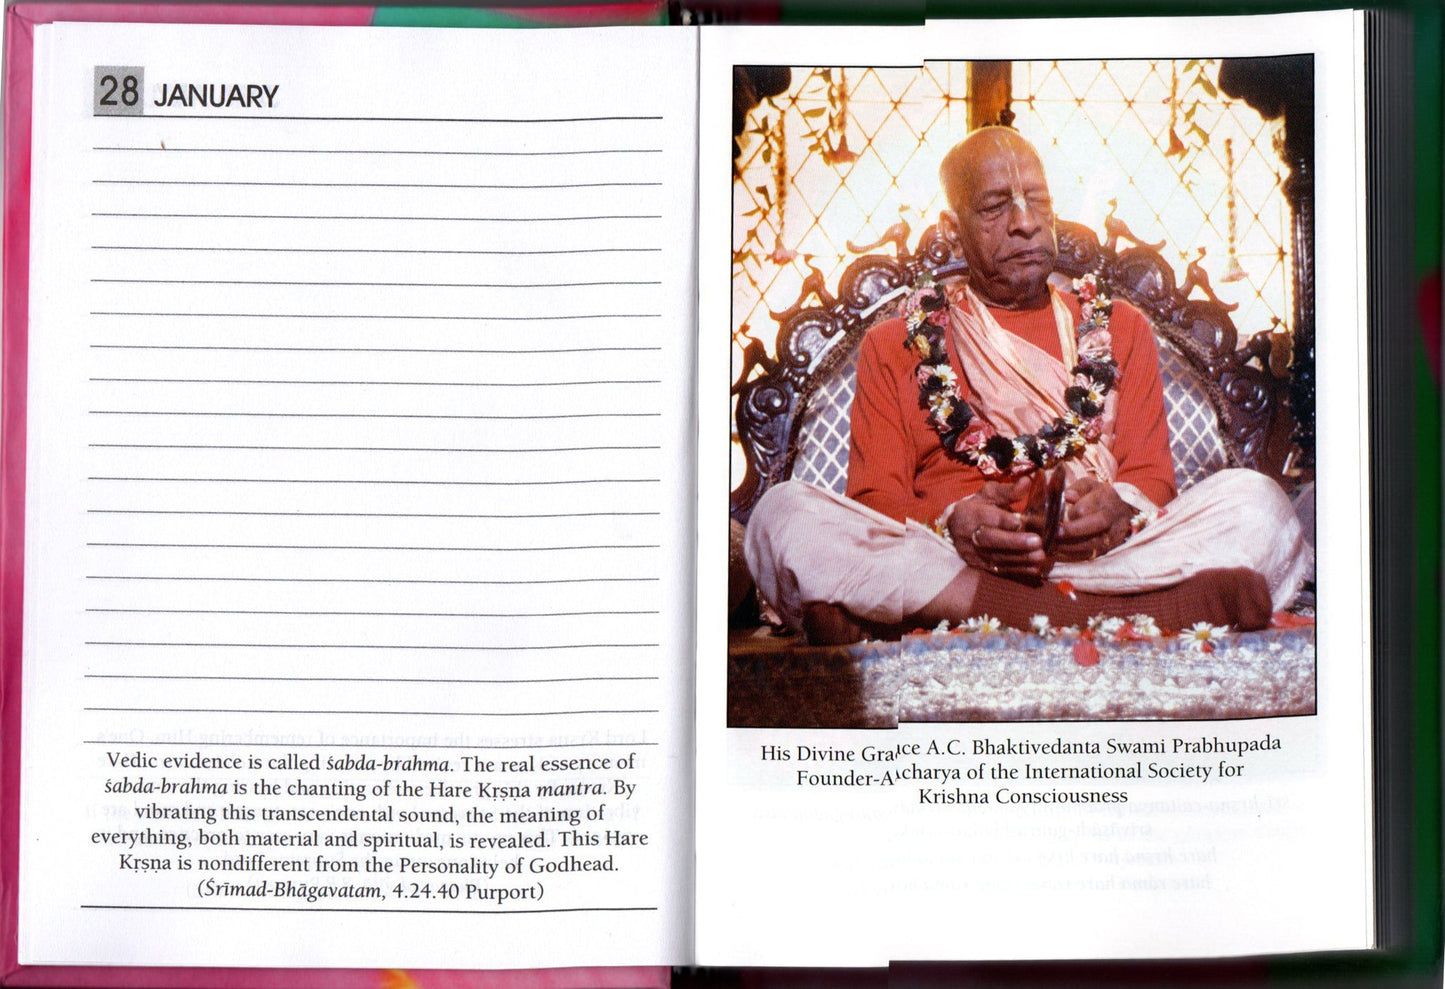 28 JANUARY
Vedic evidence is called śabda-brahma. The real essence of
śabda-brahma is the chanting of the Hare Kṛṣṇa mantra. By
vibrating this transcendental sound, the meaning of
everything, both material and spiritual, is revealed. This Hare
Kṛṣṇa is nondifferent from the Personality of Godhead.
(Śrīmad-Bhāgavatam, 4.24.40 Purport)
His Divine Grace A.C. Bhaktivedanta Swami Prabhupada
Founder-Acharya of the International Society for
Krishna Consciousness